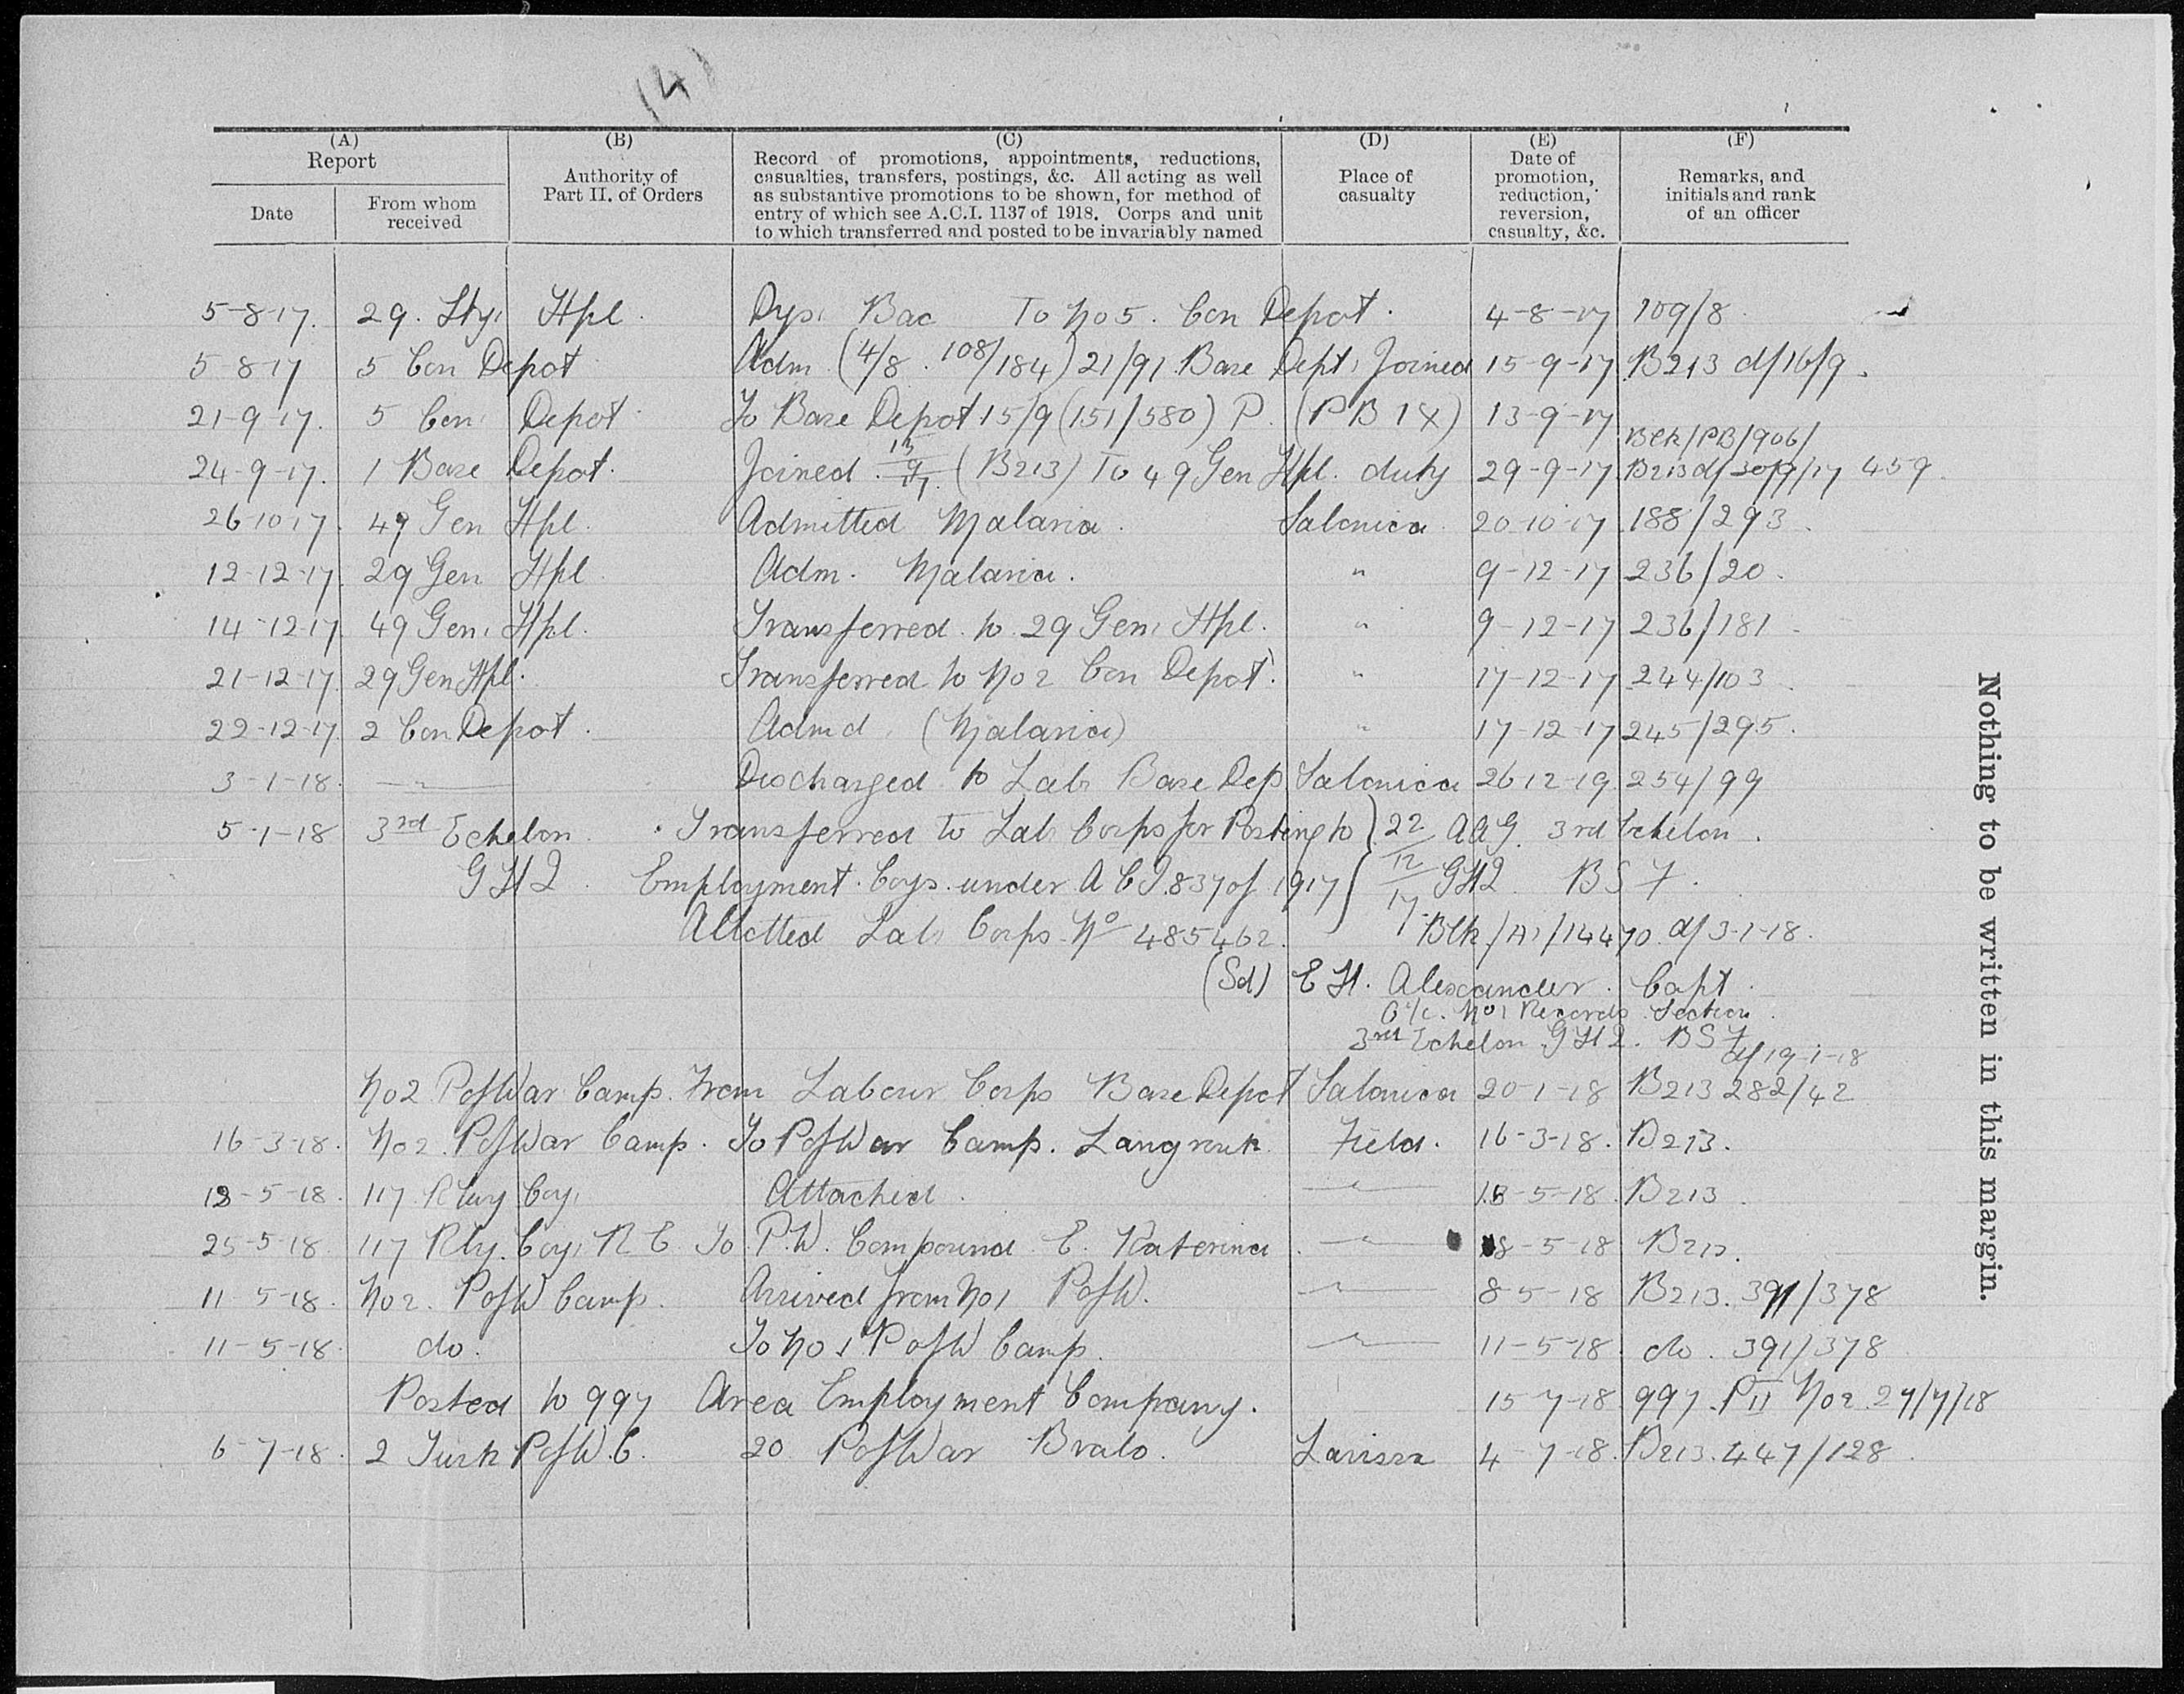 (4)
(A) Report
Date
From whom received
(B)
Authority of Part II. of Orders
(C)
Record of promotions, appointments, reductions,
casualties, transfers, postings, &c. All acting as well
as substantive promotions to be shown, for method of
entry of which see A.C.I. 1137 of 1918. Corps and unit
to which transferred and posted to be invariably named
(D)
Place of casualty
(E)
Date of promotion, reduction, reversion, casualty, &c.
(F)
Remarks, and initials and rank of an officer
5-8-17. 29. Sty. Hpl. Dys. Bac To No 5. Con Depot. 4-8-17 109/8
5-8-17 5 Con Depot Adm. (4/8. 108/184) 21/91 Base Dept. Joined 15-9-17 B213 d/16/9.
21-9-17. 5 Con Depot To Base Depot 15/9 (151/580) P. (PB 1X) 13-9-17 Blk/PB/906/
24-9-17. 1 Base Depot. Joined 13/9/17. (B213) To 49 Gen Hpl. duty 29-9-17 B213 d/30/9/17 459.
26-10-17. 49 Gen Hpl. Admitted Malaria. Salonica 20-10-17 188/293.
12-12-17. 29 Gen Hpl. Adm. Malaria. " 9-12-17 236/20.
14-12-17 49 Gen. Hpl. Transferred to 29 Gen. Hpl. " 9-12-17 236/181
21-12-17. 29 Gen Hpl. Transferred to No 2 Con Depot. " 17-12-17 244/103
22-12-17 2 Con Depot. Admd. (Malaria) " 17-12-17 245/295.
3-1-18. — " — Discharged to Lab. Base Dep Salonica 26 12-19 254/99
5-1-18 3rd Echelon. Transferred to Lab. Corps for Posting to } 22 A A G. 3rd Echelon.
G H Q. Employment. Coys. under A C I. 837 of 1917 } 12/17 GHQ. B S F.
Allotted Lab. Corps No 485462. Blk/A1/14470. d/3-1-18.
(Sd) E H. Alexander. Capt.
O i/c. No 1 Records Section.
3rd Echelon G H Q. B S F
d/19-1-18
No 2. P of War Camp. From Labour Corps Base Depot Salonica 20-1-18 B213 282/42
16-3-18. No 2. P of War Camp. To P of War Camp. Langrouk Field. 16-3-18. B213.
18-5-18. 117 Rlwy Coy. Attached. — " — 18-5-18. B213.
25-5-18 117 Rly. Coy. R E To P.W. Compound E. Katerina. — " — 18-5-18 B213.
11-5-18. No 2. P of W Camp. Arrived from No 1 P of W. — " — 8-5-18 B213. 391/378
11-5-18. do. To No 1 P of W Camp. — " — 11-5-18. do. 391/378
Posted to 997 Area Employment Company. 15-7-18 997. P II No 2. 27/7/18
6-7-18. 2 Turk P of W. C. 20 P of War Bralo. Larissa 4-7-18. B213. 447/128.
Nothing to be written in this margin.